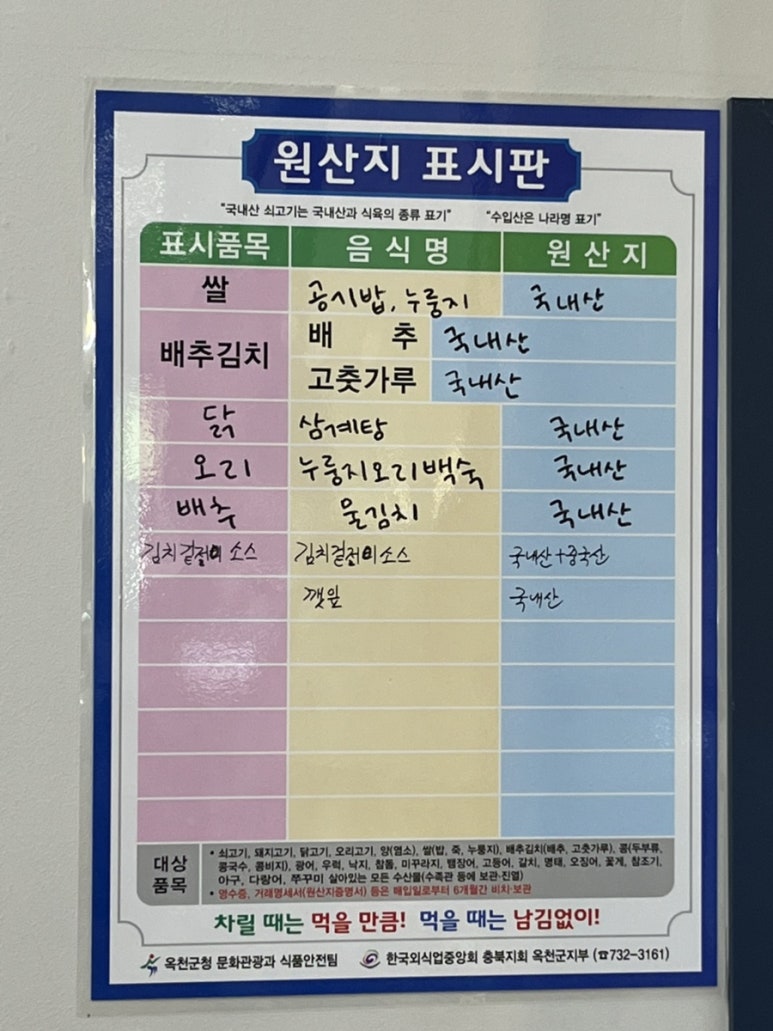 원산지 표시판
"국내산 쇠고기는 국내산과 식육의 종류 표기" "수입산은 나라명 표기"
표시품목 음식명 원산지
쌀 공기밥, 누룽지 국내산
배추김치 배추 국내산
고춧가루 국내산
닭 삼계탕 국내산
오리 누룽지오리백숙 국내산
배추 물김치 국내산
김치겉절이 소스 김치겉절이소스 국내산+중국산
깻잎 국내산
대상 품목
• 쇠고기, 돼지고기, 닭고기, 오리고기, 양(염소), 쌀(밥, 죽, 누룽지), 배추김치(배추, 고춧가루), 콩(두부류,
콩국수, 콩비지), 광어, 우럭, 낙지, 참돔, 미꾸라지, 뱀장어, 고등어, 갈치, 명태, 오징어, 꽃게, 참조기,
아구, 다랑어, 쭈꾸미 살아있는 모든 수산물(수족관 등에 보관·진열)
• 영수증, 거래명세서(원산지증명서) 등은 매입일로부터 6개월간 비치·보관
차릴 때는 먹을 만큼! 먹을 때는 남김없이!
옥천군청 문화관광과 식품안전팀 한국외식업중앙회 충북지회 옥천군지부 (☎732-3161)